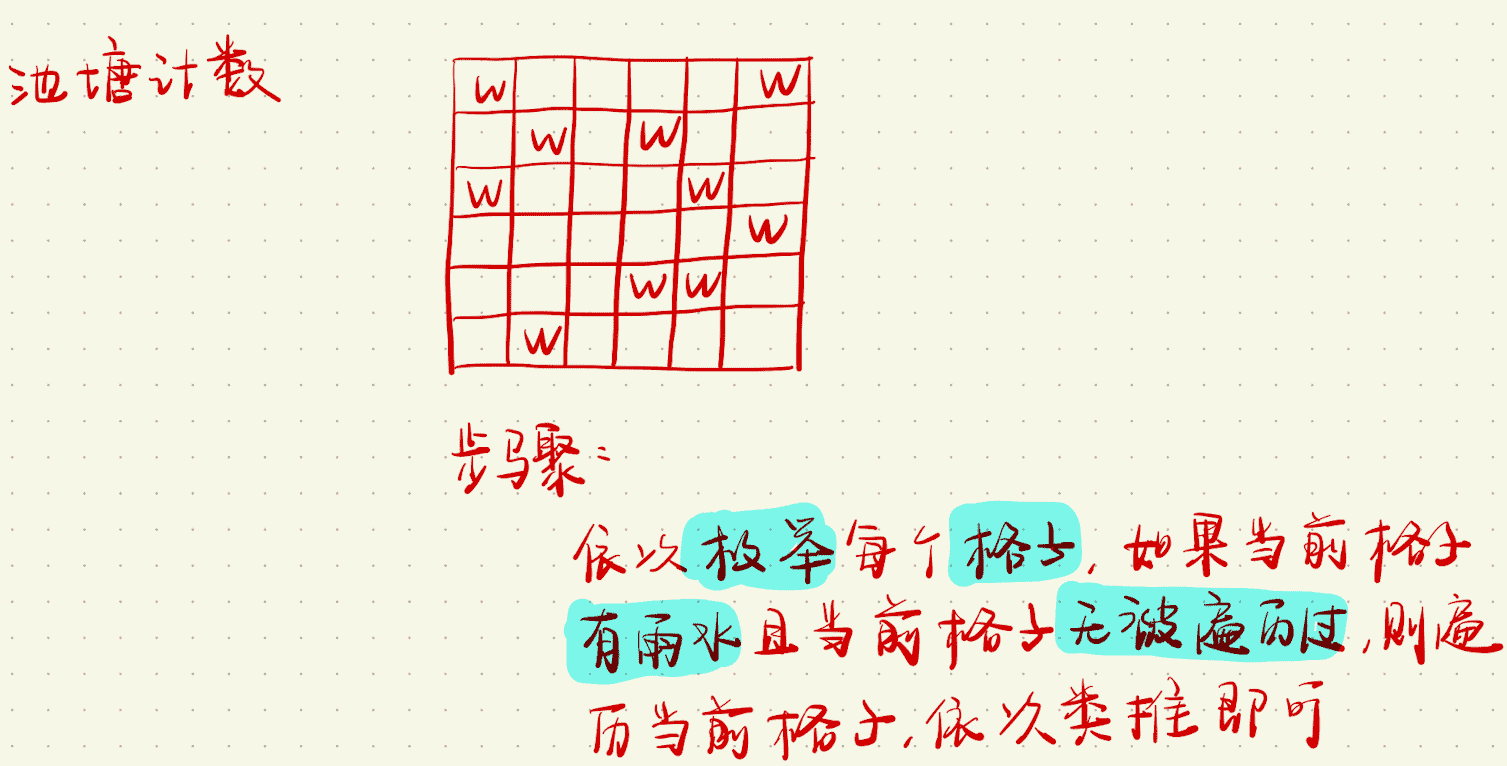 池塘计数
W W
W W
W W
W
W W
W
步骤：
依次枚举每个格子，如果当前格子
有雨水且当前格子无被遍历过，则遍
历当前格子，依次类推即可